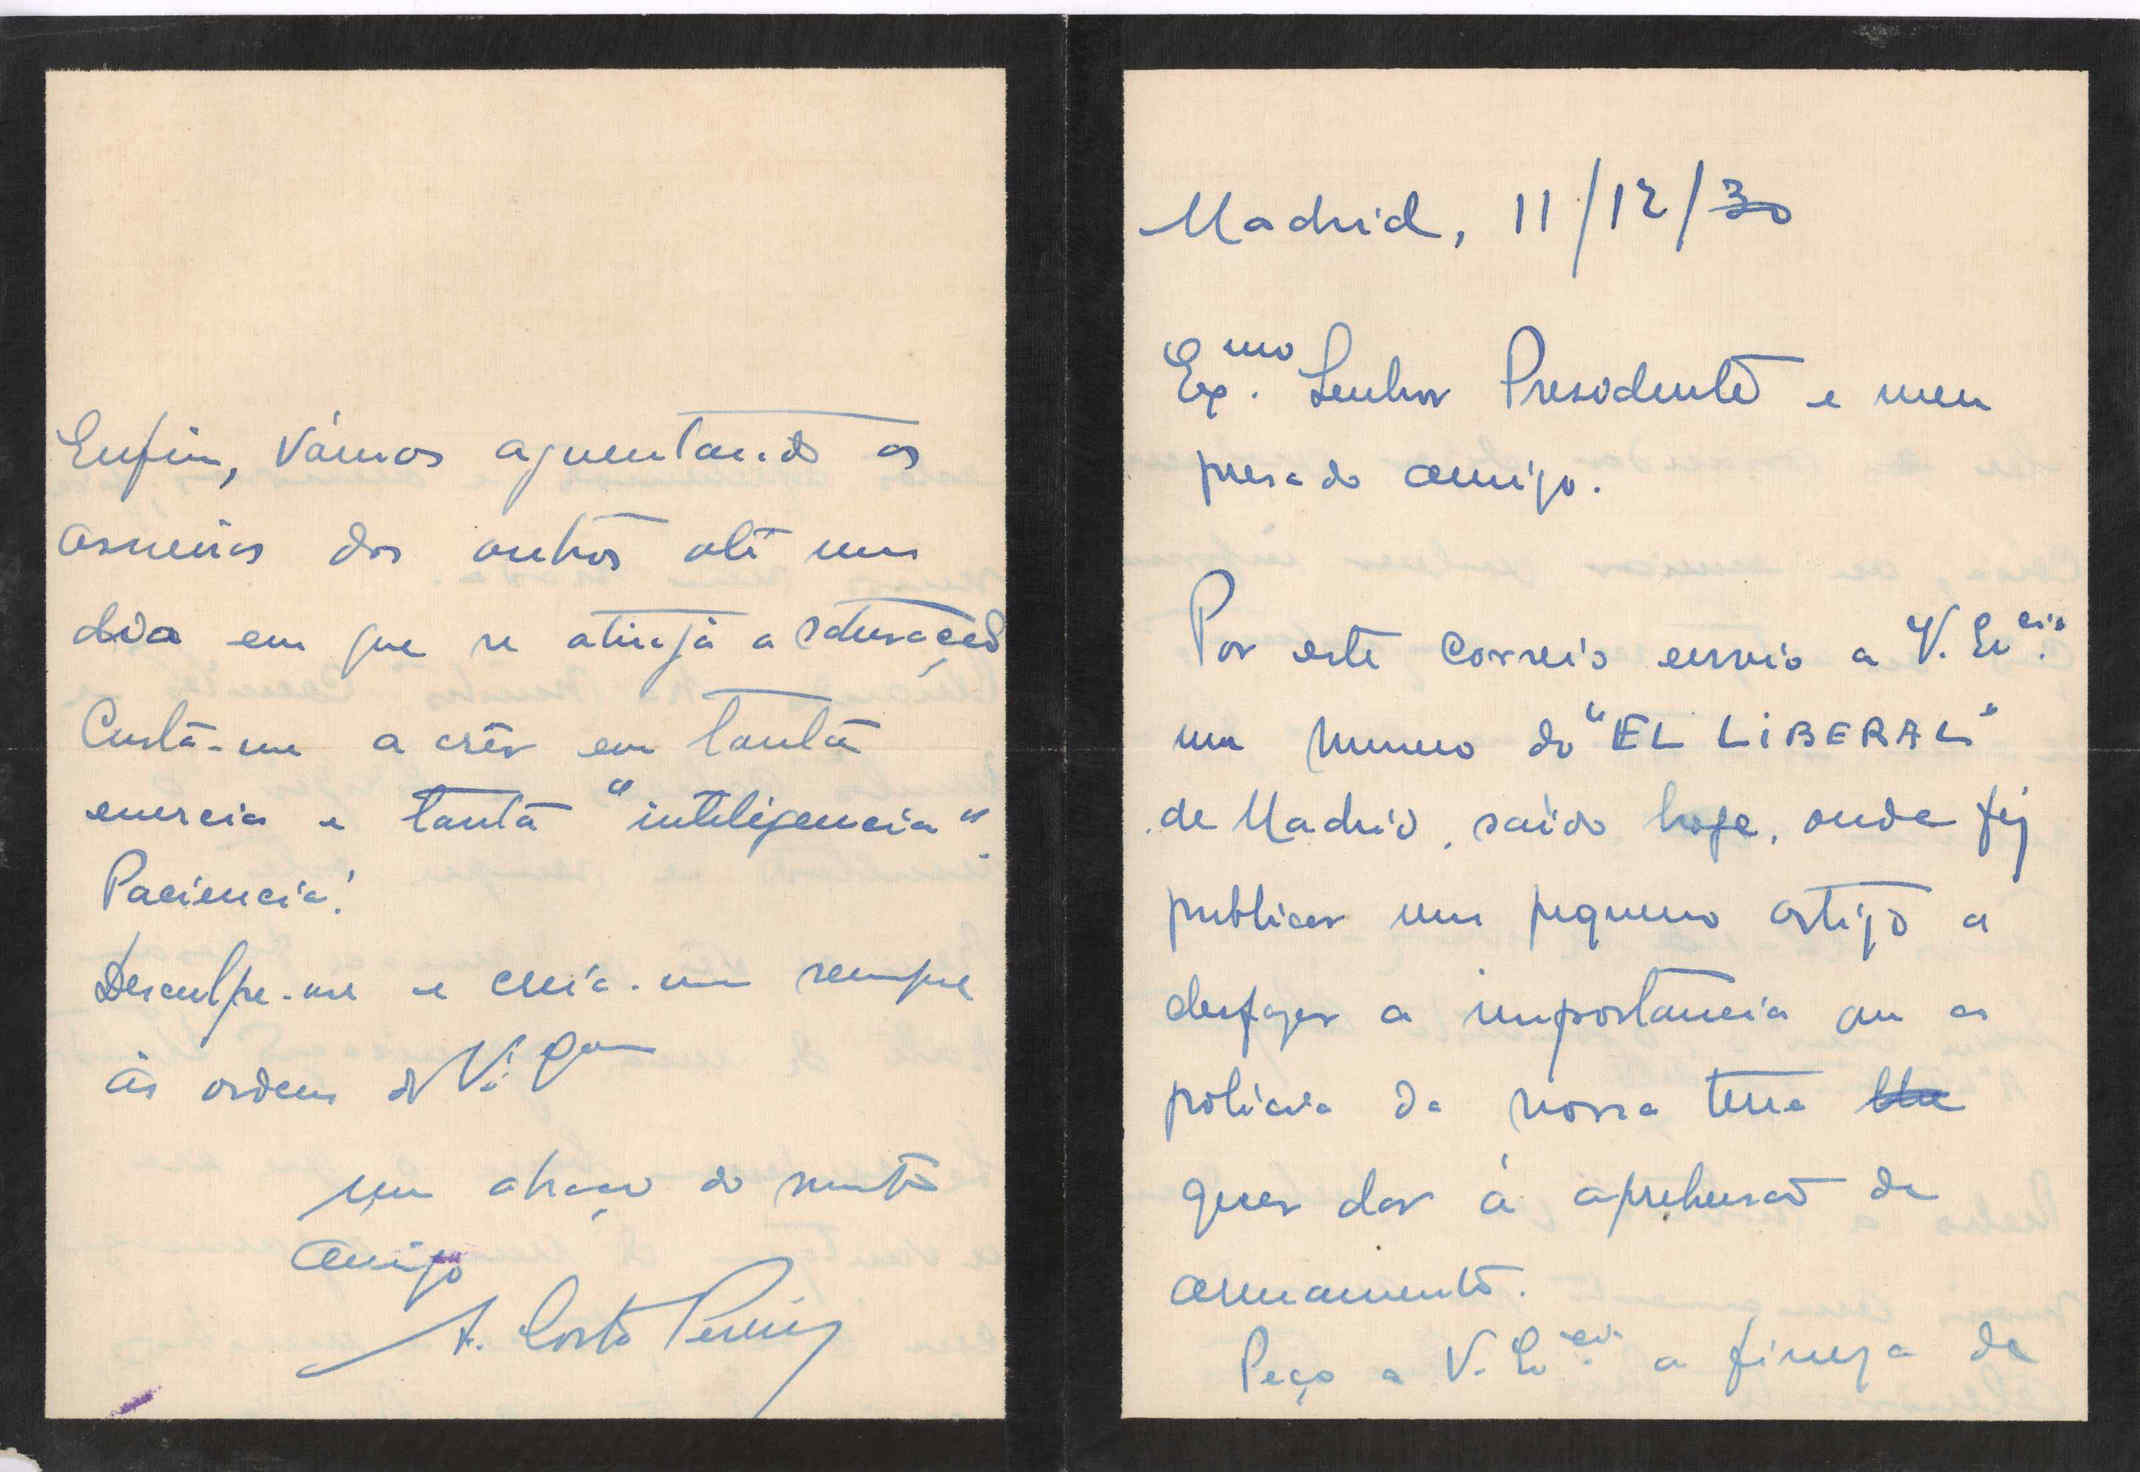 Madrid, 11/12/30
Ex.mo Senhor Presidente e meu
presado amigo.
Por este correio envio a V. Ex.cia
um numero do "EL LIBERAL"
de Madrid, saido hoje, onde fiz
publicar um pequeno artigo a
desfazer a importancia que as
policia da nossa terra
quer dar á aprehensão de
armamento.
Peço a V. Ex.cia a fineza de
Enfim, vámos aguentando as
asneiras dos outros até um
dia em que se atinja a saturação
Custa-me a crêr em tanta
enercia e tanta "inteligencia".
Paciencia!
Desculpe-me e creia-me sempre
ás ordens de V.
Um abraço do muito
amigo
A. Costa Pereira